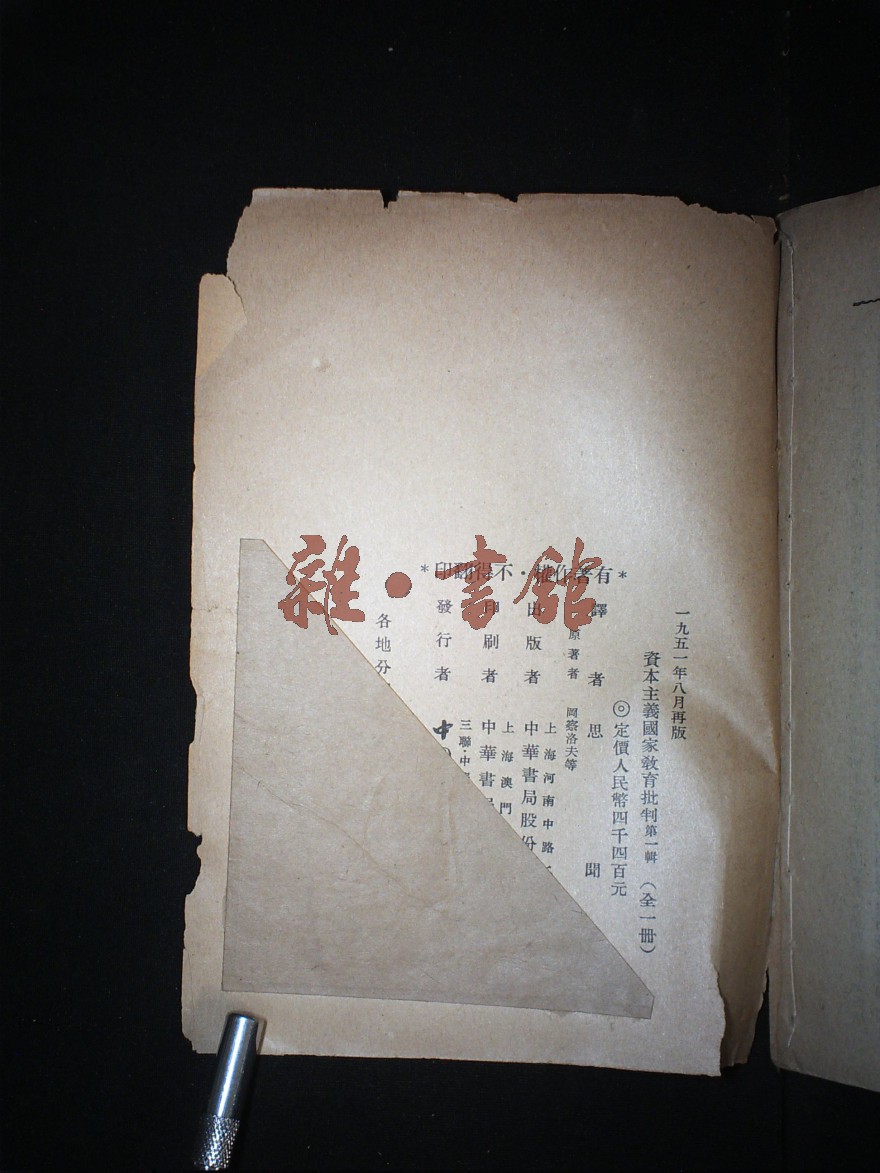 一九五一年八月再版
資本主義國家教育批判第一輯（全一冊）
◎定價人民幣四千四百元
*有著作權・不得翻印*
譯者 思聞
原著者 岡察洛夫等
上海河南中路
出版者 中華書局股份
上海澳門
印刷者 中華書局
三聯・中
發行者 中
各地分
雜・書館